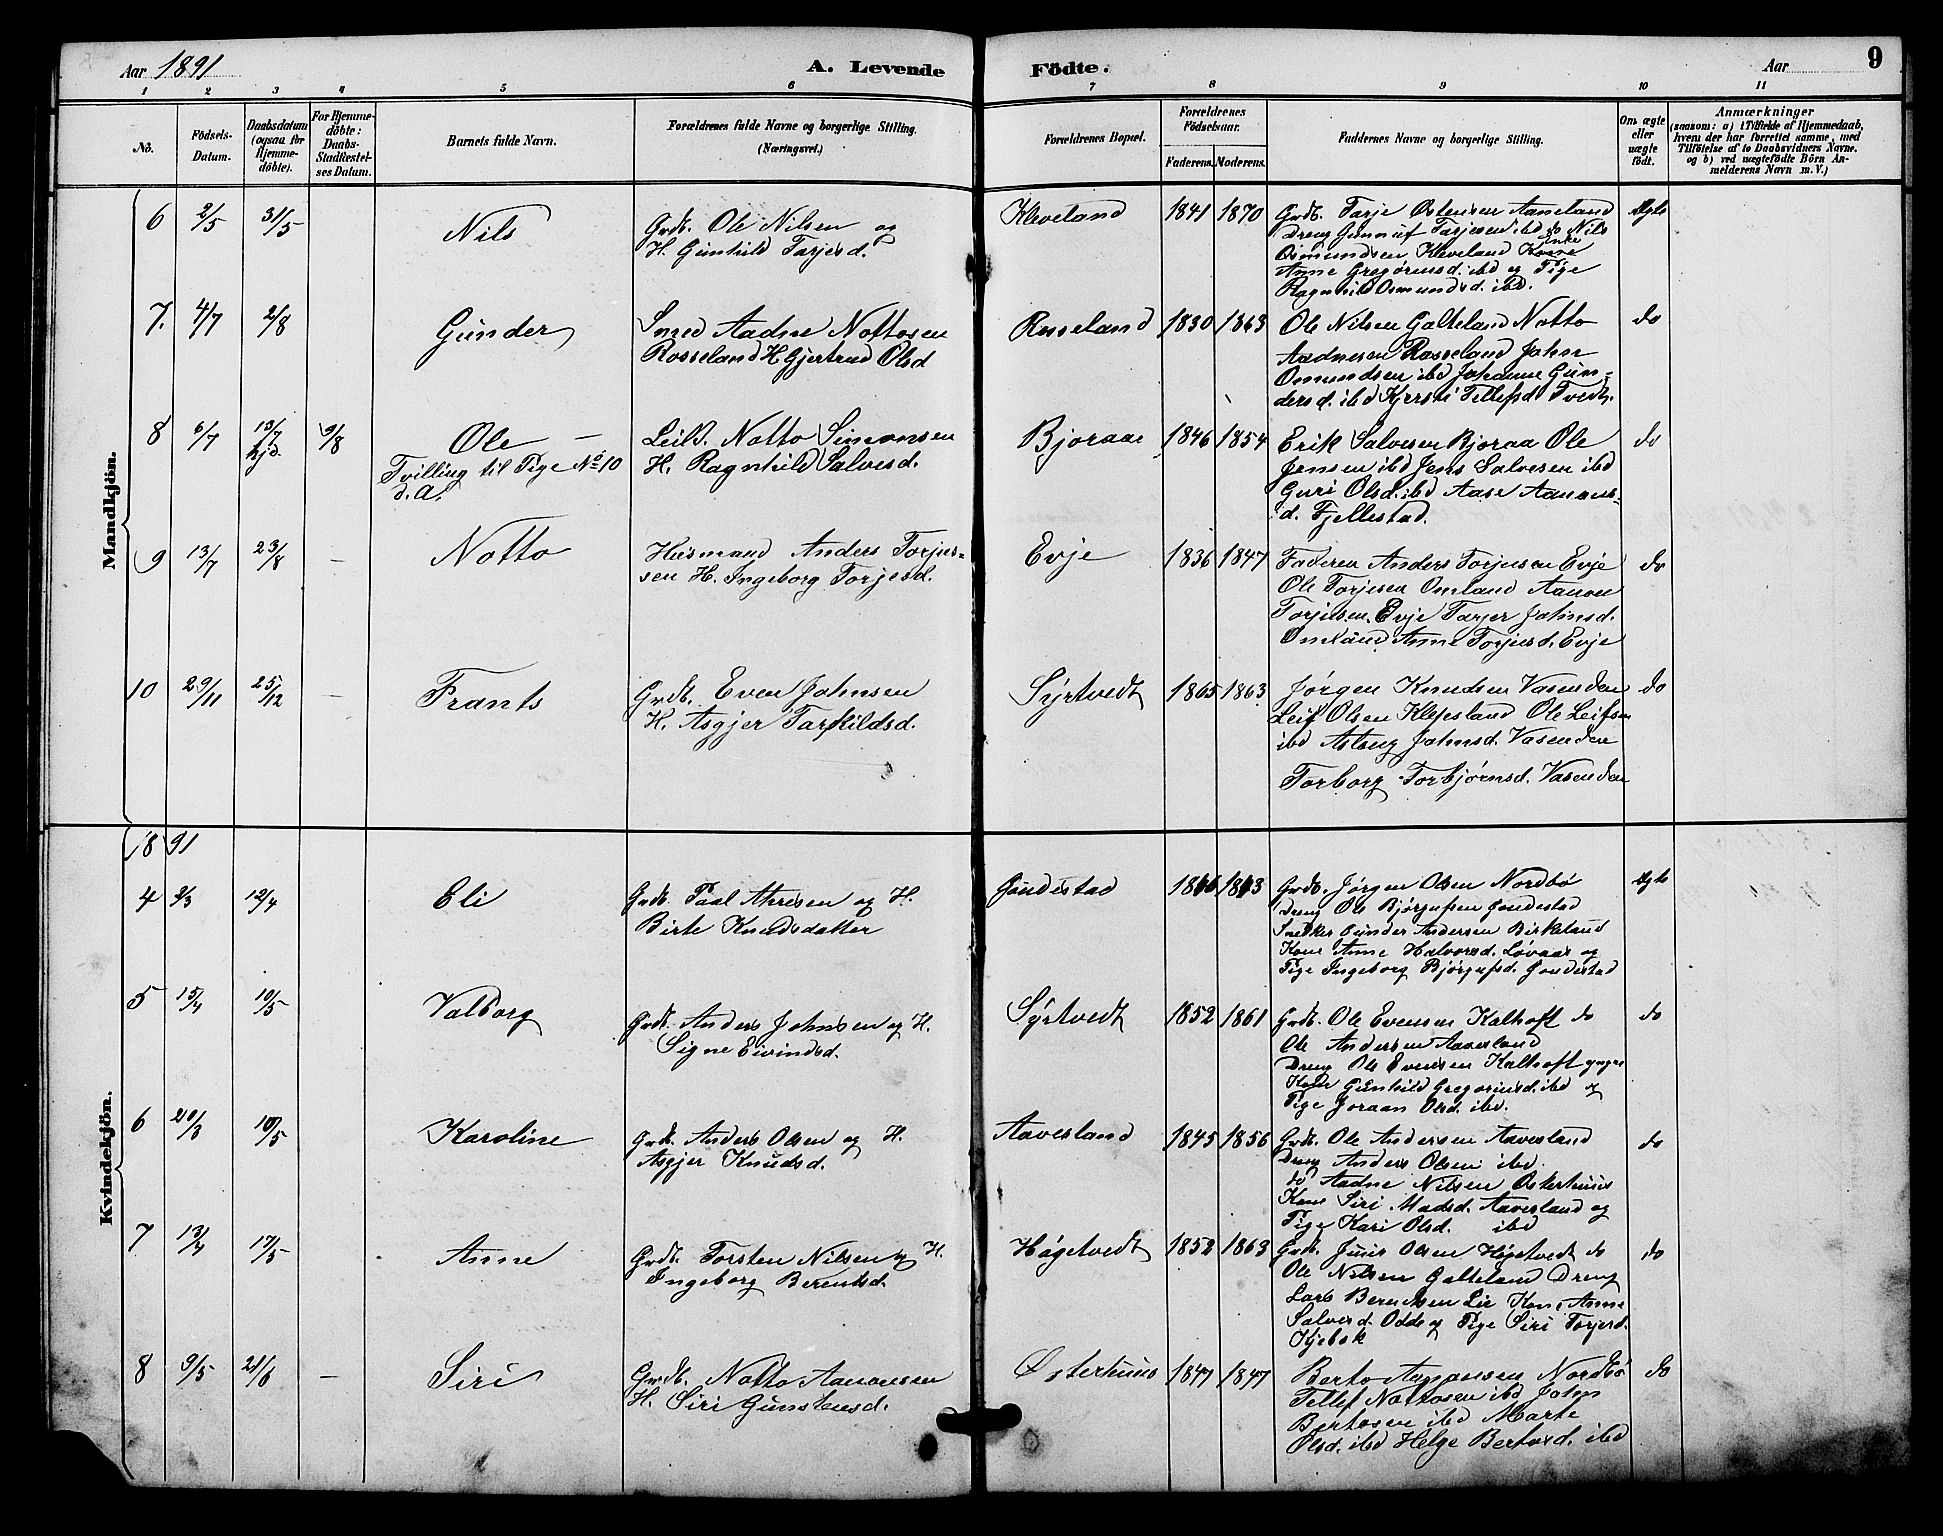 Aar 1891
A. Levende Födte.
Aar
9
1 2 3 4 5 6 7 8 9 10 11
No.
Födsels-Datum.
Daabsdatum (ogsaa for Hjemme-döbte).
For Hjemme-döbte: Daabs-Stadfæstel-ses Datum.
Barnets fulde Navn.
Forældrenes fulde Navne og borgerlige Stilling.
(Næringsvei.)
Forældrenes Bopæl.
Forældrenes Födselsaar.
Faderens. Moderens.
Faddernes Navne og borgerlige Stilling.
Om ægte eller uægte födt.
Anmærkninger
(saasom: a) i Tilfælde af Hjemmedaab,
hvem der har forrettet samme, med
Tilföielse af to Daabsvidners Navne.
og b) ved uægtefödte Börn An-
melderens Navn m. V.)
Mandkjön.
6 2/5 31/5 Nils
Grdb. Ole Nilsen og
H. Gunhild Tarjesd.
Kleveland 1841 1870
Grdb. Tarje Østensen Aaneland
Dreng Gunnuf Tarjesen ibd do Nils
Osmundsen Kleveland Enke
Anne Gregoriusd. ibd og Pige
Ragnhild Osmundsd. ibd.
Ægte
7. 4/7 2/8 Gunder
Smed Aadne Nottosen
Rosseland H. Gjertrud Olsd
Rosseland 1830 1863
Ole Nilsen Galteland Notto
Aadnesen Rosseland John
Omundsen ibd Johanne Gun-
dersd. ibd Kjersti Tellefsd Tvedt.
do
8 6/7 13/7 hjd. 9/8 Ole —
Tvilling til Pige No 10
d. A.
Leild. Notto Simonsen
H. Ragnhild Salvesd.
Bjoraae 1846 1854
Erik Salvesen Bjoraa Ole
Jensen ibd Jens Salvesen ibd
Guri Olsd. ibd Aase Aanens-
d. Fjellestad.
do
9 13/7 23/8 — Notto
Husmand Anders Torjus-
sen H. Ingeborg Torjesd.
Evje 1836 1847
Faderen Anders Torjusen Evje
Ole Torjesen Omland Aanon
Torjusen Evje Tarjer Johnsd.
Omland Anne Torjusd. Evje
do
10 29/11 25/12 — Frants
Grdb. Even Johnsen
H. Asgjer Tarkildsd.
Syrtvedt 1865 1863
Jørgen Knudsen Vasenden
Leif Olsen Klepsland Ole Leifsen
ibd Astrug Johnsd. Vasenden
Torborg Torbjørnsd. Vasenden
do
Kvindekjön.
1891
4 2/3 12/4 Eli
Grdb. Paal Atresen og H.
Birte Knudsdatter
Gundestad 1866 1863
Grdb. Jørgen Olsen Nordbø
Dreng Ole Bjørgufsen Gundestad
Snedker Gunder Andersen Birkeland
Kone Anne Halvorsd. Løvaas og
Pige Ingeborg Bjørgufsd. Gundestad
Ægte
5 15/4 10/5 Valborg
Grdb. Anders Johnsen og H.
Signe Eivindsd.
Syrtvedt 1852 1861
Grdb. Ole Evensen Kalhoft do
Ole Andersen Aavesland
Dreng Ole Evensen Kalhoft yngre
Kone Gunhild Gregoriusd. ibd og
Pige Joraan Olsd. ibd.
do
6 20/3 10/5 Karoline
Grdb. Anders Olsen og H.
Asgjer Knudsd.
Aavesland 1845 1856
Grdb. Ole Andersen Aavesland
Dreng Anders Olsen ibd.
do Aadne Nilsen Østerhuus
Kone Siri Madsd. Aavesland og
Pige Kari Olsd. ibd
do
7 13/4 17/5 Anne
Grdb. Torsten Nilsen og H.
Ingeborg Berentsd.
Høgetvedt 1852 1863
Grdb. Jens Olsen Høgetvedt do
Ole Nilsen Galteland Dreng
Lars Berentsen Lie Kone Anne
Salvesd. Odde og Pige Siri Torjusd.
Kjebek
do
8 9/5 21/6 — Siri
Grdb. Notto Aanonsen
H. Siri Gunstensd.
Østerhuus 1847 1847
Berto Aanonsen Nordbø
Tellef Nottosen ibd John
Bertosen ibd Marte
Olsd. ibd Helge Bertosd. ibd
do